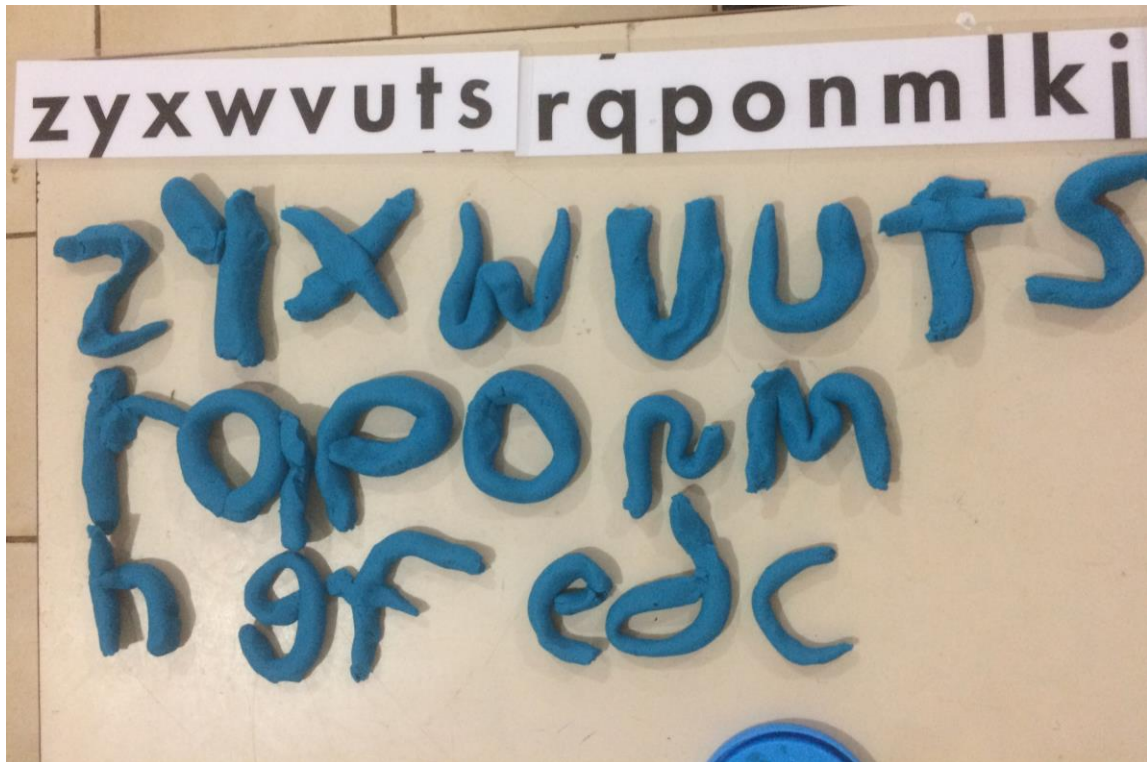 z y x w v u t s r q p o n m l k j
z y x w v u t s
r q p o n m
h g f e d c